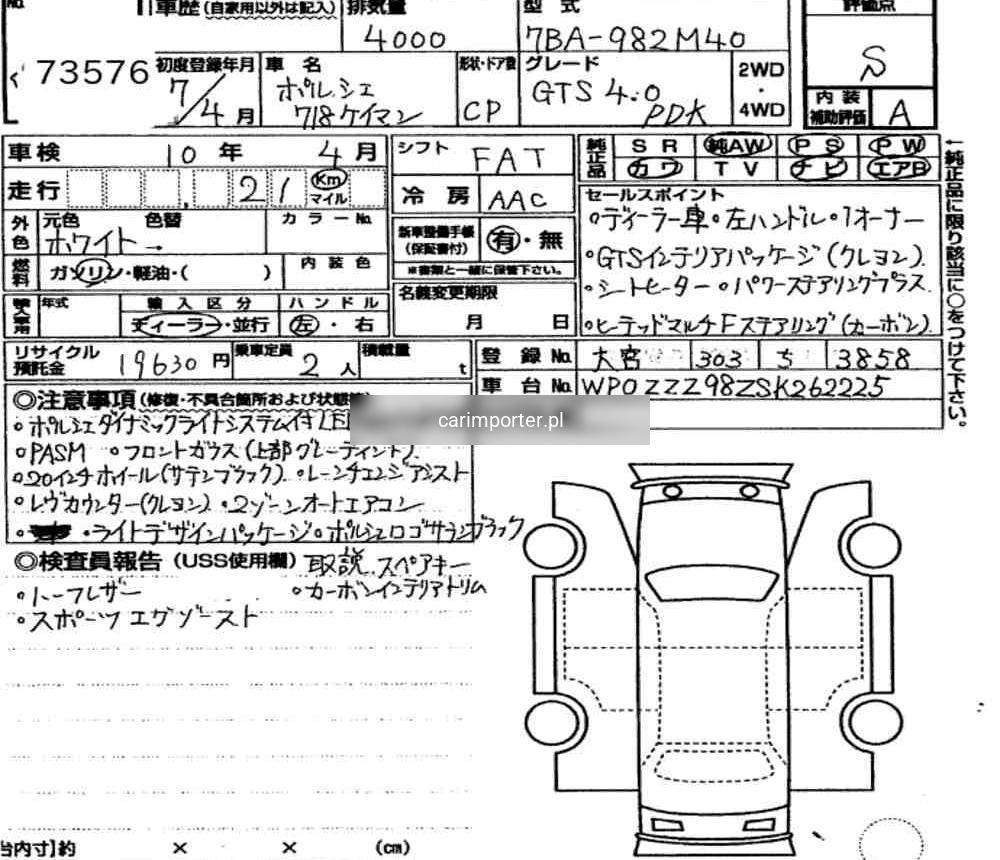 No.
車歴(自家用以外は記入) 排気量 型式 評価点
4000 7BA-982M40 S
73576 初度登録年月 車名 形状・ドア数 グレード 2WD
7/4月 ポルシェ GTS 4.0 ・
718ケイマン CP PDK 4WD
内装補助評価 A
車検 10年 4月 シフト FAT 純正品 SR 純AW PS PW
カワ TV ナビ エアB
走行 21 Km マイル 冷房 AAC セールスポイント
外色 元色 色替 カラーNo. 新車整備手帳(保証書付) 有・無 ◦ディーラー車◦左ハンドル◦1オーナー
ホワイト → ※書類と一緒に保管下さい。 ◦GTSインテリアパッケージ(クレヨン).
燃料 ガソリン・軽油・( ) 内装色 名義変更期限 ◦シートヒーター ◦パワーステアリングプラス
年式 輸入区分 ハンドル 月 日 ◦ヒーテッドマルチFステアリング(カーボン).
ディーラー・並行 左・右
←純正品に限り該当に○をつけて下さい。
リサイクル預託金 19630円 乗車定員 2人 積載量 t 登録No. 大宮 303 5 3858
車台No. WP0ZZZ98ZSK262225
◎注意事項(修復・不具合箇所および状態等)
carimporter.pl
◦ポルシェダイナミックライトシステム付LED
◦PASM ◦フロントガラス(上部グレーティント).
◦20インチホイール(サテンブラック). ◦レーンチェンジアシスト
◦レヴカウンター(クレヨン). ◦2ゾーンオートエアコン
◦ライトデザインパッケージ◦ポルシェロゴサテンブラック
◎検査員報告(USS使用欄) 取説.スペアキー
◦ハーフレザー ◦カーボンインテリアトリム
◦スポーツエグゾースト
台内寸】約 × × (cm)